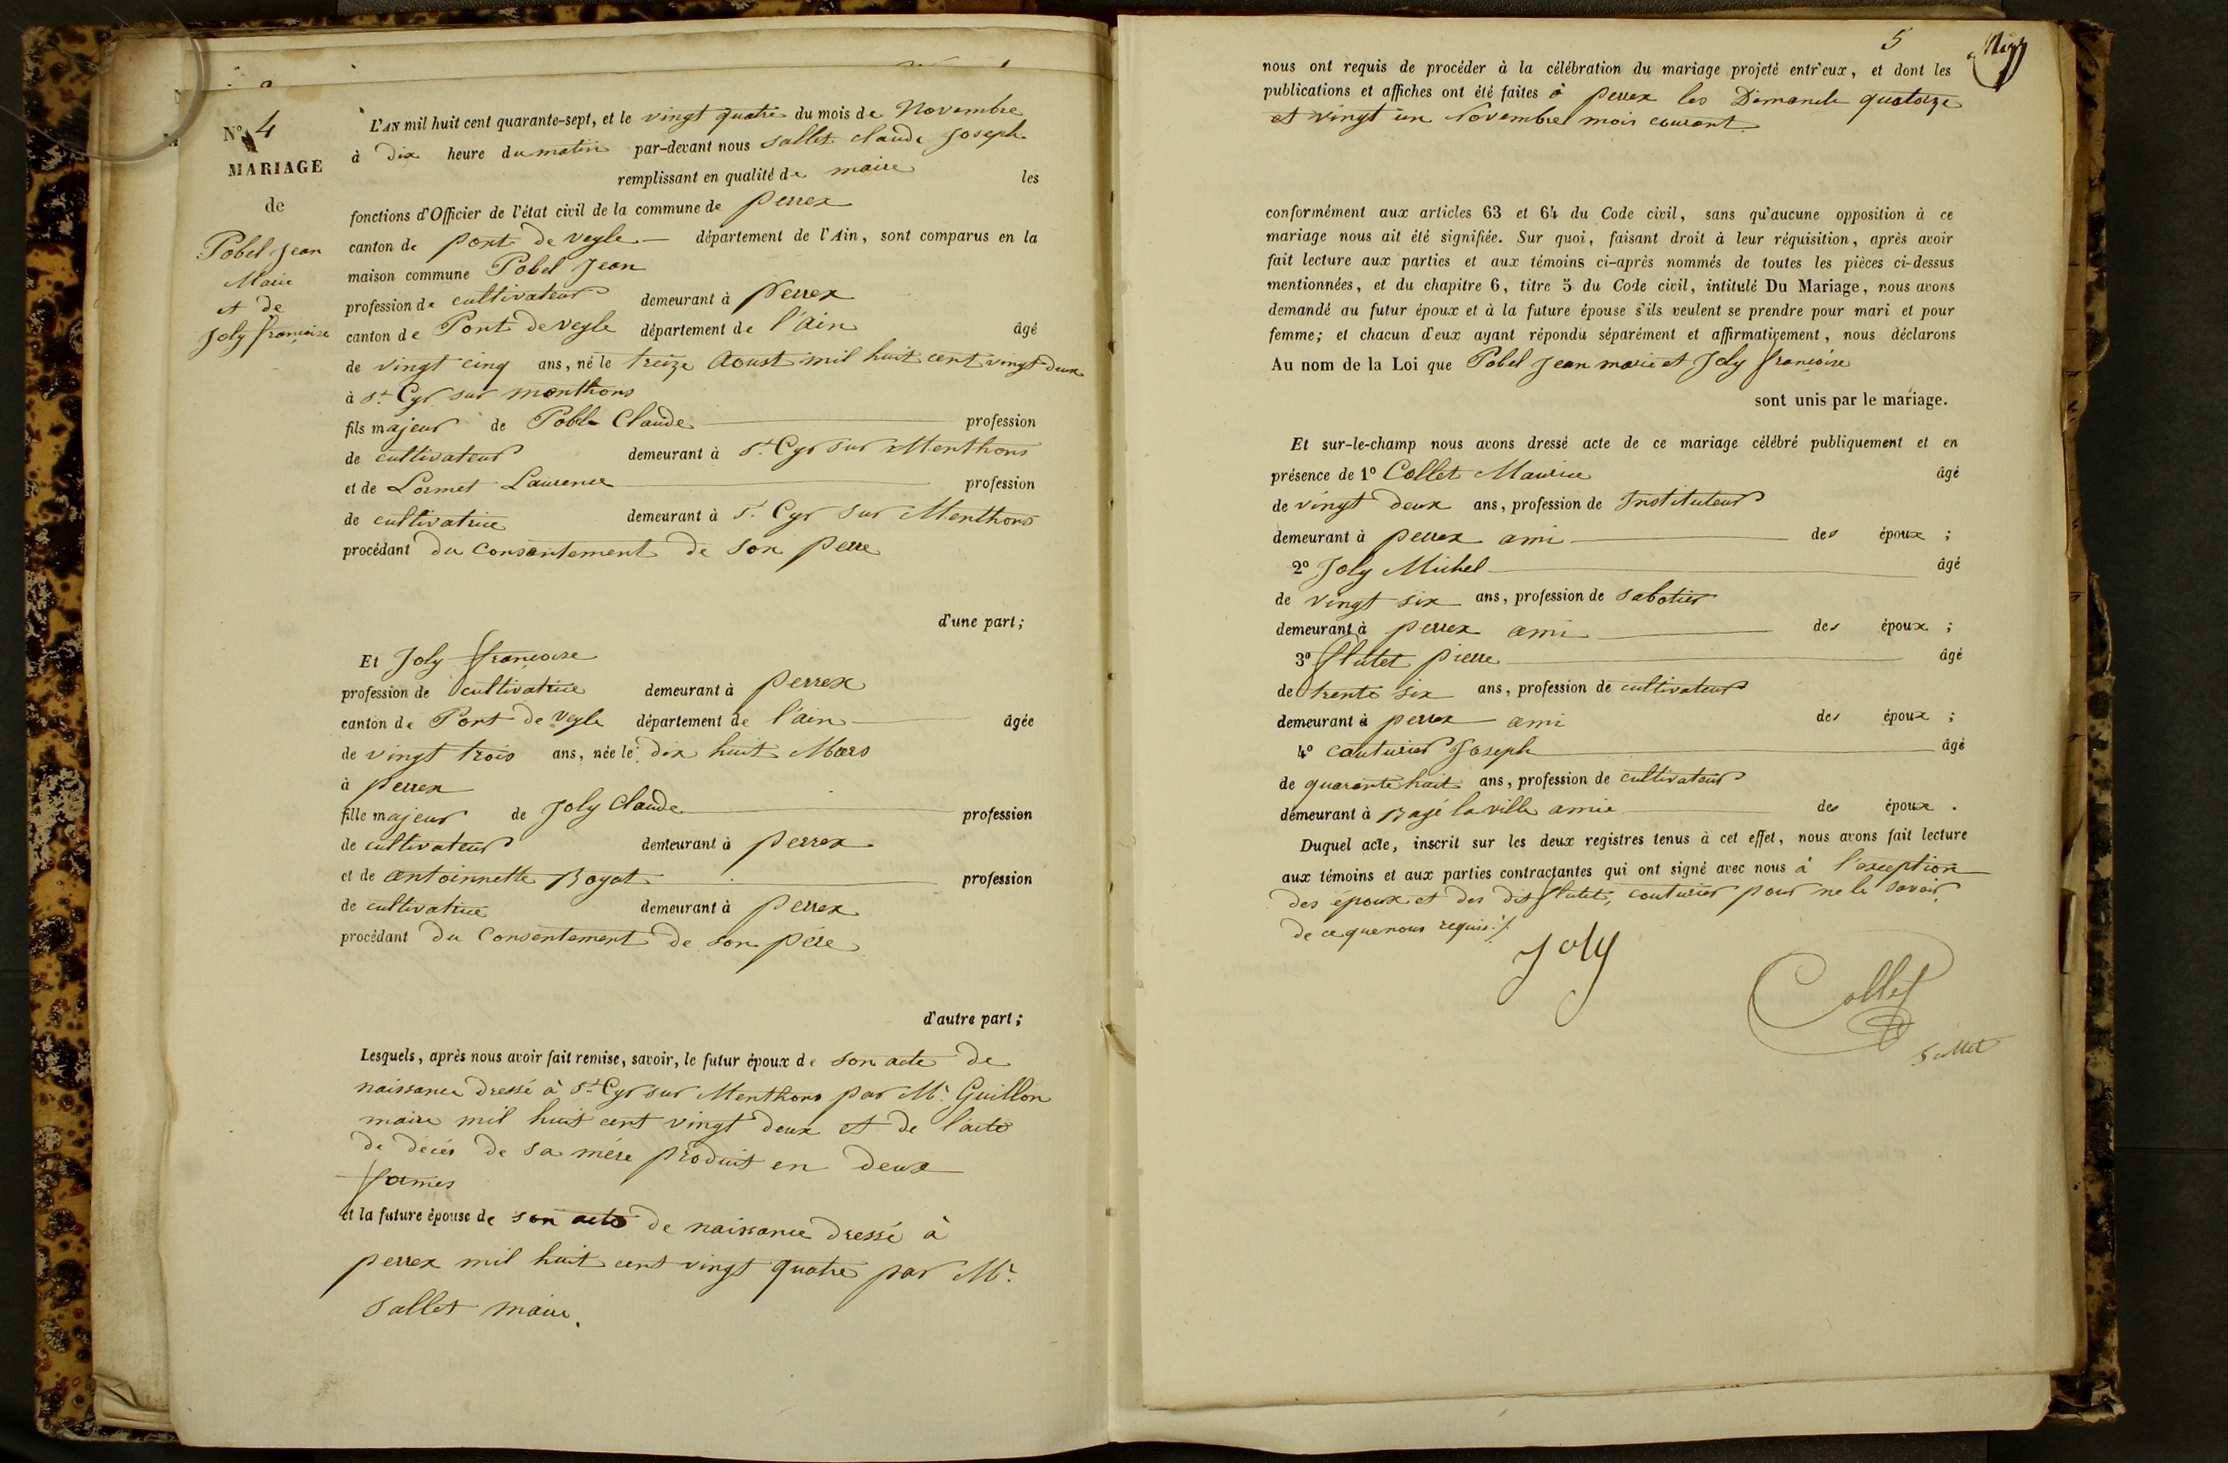 N° 4
MARIAGE
de
Pobel Jean
Marie
et de
Joly françoise
L'AN mil huit cent quarante-sept, et le vingt quatre du mois de Novembre
à dix heure du matin par-devant nous Sallet Claude Joseph
remplissant en qualité de maire les
fonctions d'Officier de l'état civil de la commune de perrex
canton de pont de veyle département de l'Ain, sont comparus en la
maison commune Pobel Jean
profession de cultivateur demeurant à Perrex
canton de Pont de veyle département de l'ain âgé
de vingt cinq ans, né le treize Aoust mil huit cent vingt deux
à St Cyr sur monthons
fils majeur de Poble Claude profession
de cultivateur demeurant à St Cyr sur Menthons
et de Lormet Laurence profession
de cultivatrice demeurant à St Cyr sur Menthons
procédant du consentement de son perre
d'une part;
Et Joly françoise
profession de cultivatrice demeurant à perrex
canton de Pont de Veyle département de l'ain âgée
de vingt trois ans, née le dix huit Mars
à perrex
fille majeur de Joly Claude profession
de cultivateur demeurant à perrex
et de antoinnette Boyat profession
de cultivatrice demeurant à perrex
procédant du consentement de son père
d'autre part;
Lesquels, après nous avoir fait remise, savoir, le futur époux de son acte de
naissance dressé à St Cyr sur Menthons par Mr Guillon
maire mil huit cent vingt deux et de l'acte
de décès de sa mére produit en deux
formes
et la future épouse de son acte de naissance dressé à
perrex mil huit cent vingt quatre par Mr
Sallet maire.
5
nous ont requis de procéder à la célébration du mariage projeté entr'eux, et dont les
publications et affiches ont été faites à perrex les Dimanche quatorze
et vingt un Novembre mois courant
conformément aux articles 63 et 64 du Code civil, sans qu'aucune opposition à ce
mariage nous ait été signifiée. Sur quoi, faisant droit à leur réquisition, après avoir
fait lecture aux parties et aux témoins ci-après nommés de toutes les pièces ci-dessus
mentionnées, et du chapitre 6, titre 5 du Code civil, intitulé Du Mariage, nous avons
demandé au futur époux et à la future épouse s'ils veulent se prendre pour mari et pour
femme; et chacun d'eux ayant répondu séparément et affirmativement, nous déclarons
Au nom de la Loi que Pobel Jean marie et Joly françoise
sont unis par le mariage.
Et sur-le-champ nous avons dressé acte de ce mariage célébré publiquement et en
présence de 1° Collet Maurice âgé
de vingt deux ans, profession de Instituteur
demeurant à perrex ami des époux ;
2° Joly Michel âgé
de vingt six ans, profession de sabotier
demeurant à perrex ami des époux ;
3° flutet pierre âgé
de trente six ans, profession de cultivateur
demeurant à perrex ami des époux ;
4° couturier Joseph âgé
de quarante huit ans, profession de cultivateur
demeurant à Bagé la ville amie des époux .
Duquel acte, inscrit sur les deux registres tenus à cet effet, nous avons fait lecture
aux témoins et aux parties contractantes qui ont signé avec nous à l'exception
des époux et des dits flutet, couturier pour ne le savoir
de ce que nous requis ./.
Joly
Collet
Sallet